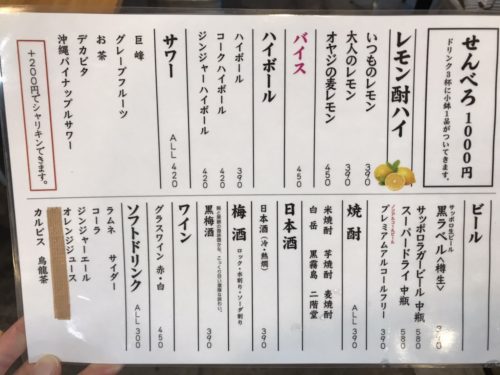 せんべろ 1000円
ドリンク3杯に小鉢1品がついてきます。
レモン酎ハイ
いつものレモン 390
大人のレモン 390
オヤジの麦レモン 450
バイス 450
ハイボール
ハイボール 390
コークハイボール 420
ジンジャーハイボール 420
サワー ALL 420
巨峰
グレープフルーツ
お茶
デカビタ
沖縄パイナップルサワー
+200円でシャリキンできます。
ビール
サッポロ生ビール
黒ラベル〈樽生〉 390
サッポロラガービール 中瓶 580
スーパードライ 中瓶 580
ノンアルコールビール
プレミアムアルコールフリー 390
焼酎 ALL 390
米焼酎 芋焼酎 麦焼酎
白岳 黒霧島 二階堂
日本酒
日本酒(冷・熱燗) 390
梅酒 ロック・水割り・ソーダ割り
黒梅酒 390
ワイン
グラスワイン 赤・白 450
ソフトドリンク ALL 300
ラムネ サイダー
コーラ
ジンジャーエール
オレンジジュース
カルピス 烏龍茶